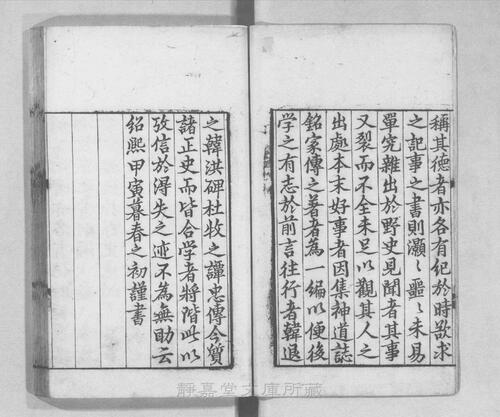 稱其德者亦各有紀於時欲求
之記事之書則灝〻噩〻未易
單究雜出於野史見聞者其事
又裂而不全未足以觀其人之
出處本末好事者因集神道誌
銘家傳之著者為一編以便後
學之有志於前言往行者韓退
之韓洪碑杜牧之譚忠傳今質
諸正史而皆合學者將階此以
攷信於得失之迹不為無助云
紹熙甲寅暮春之初謹書
靜嘉堂文庫所藏